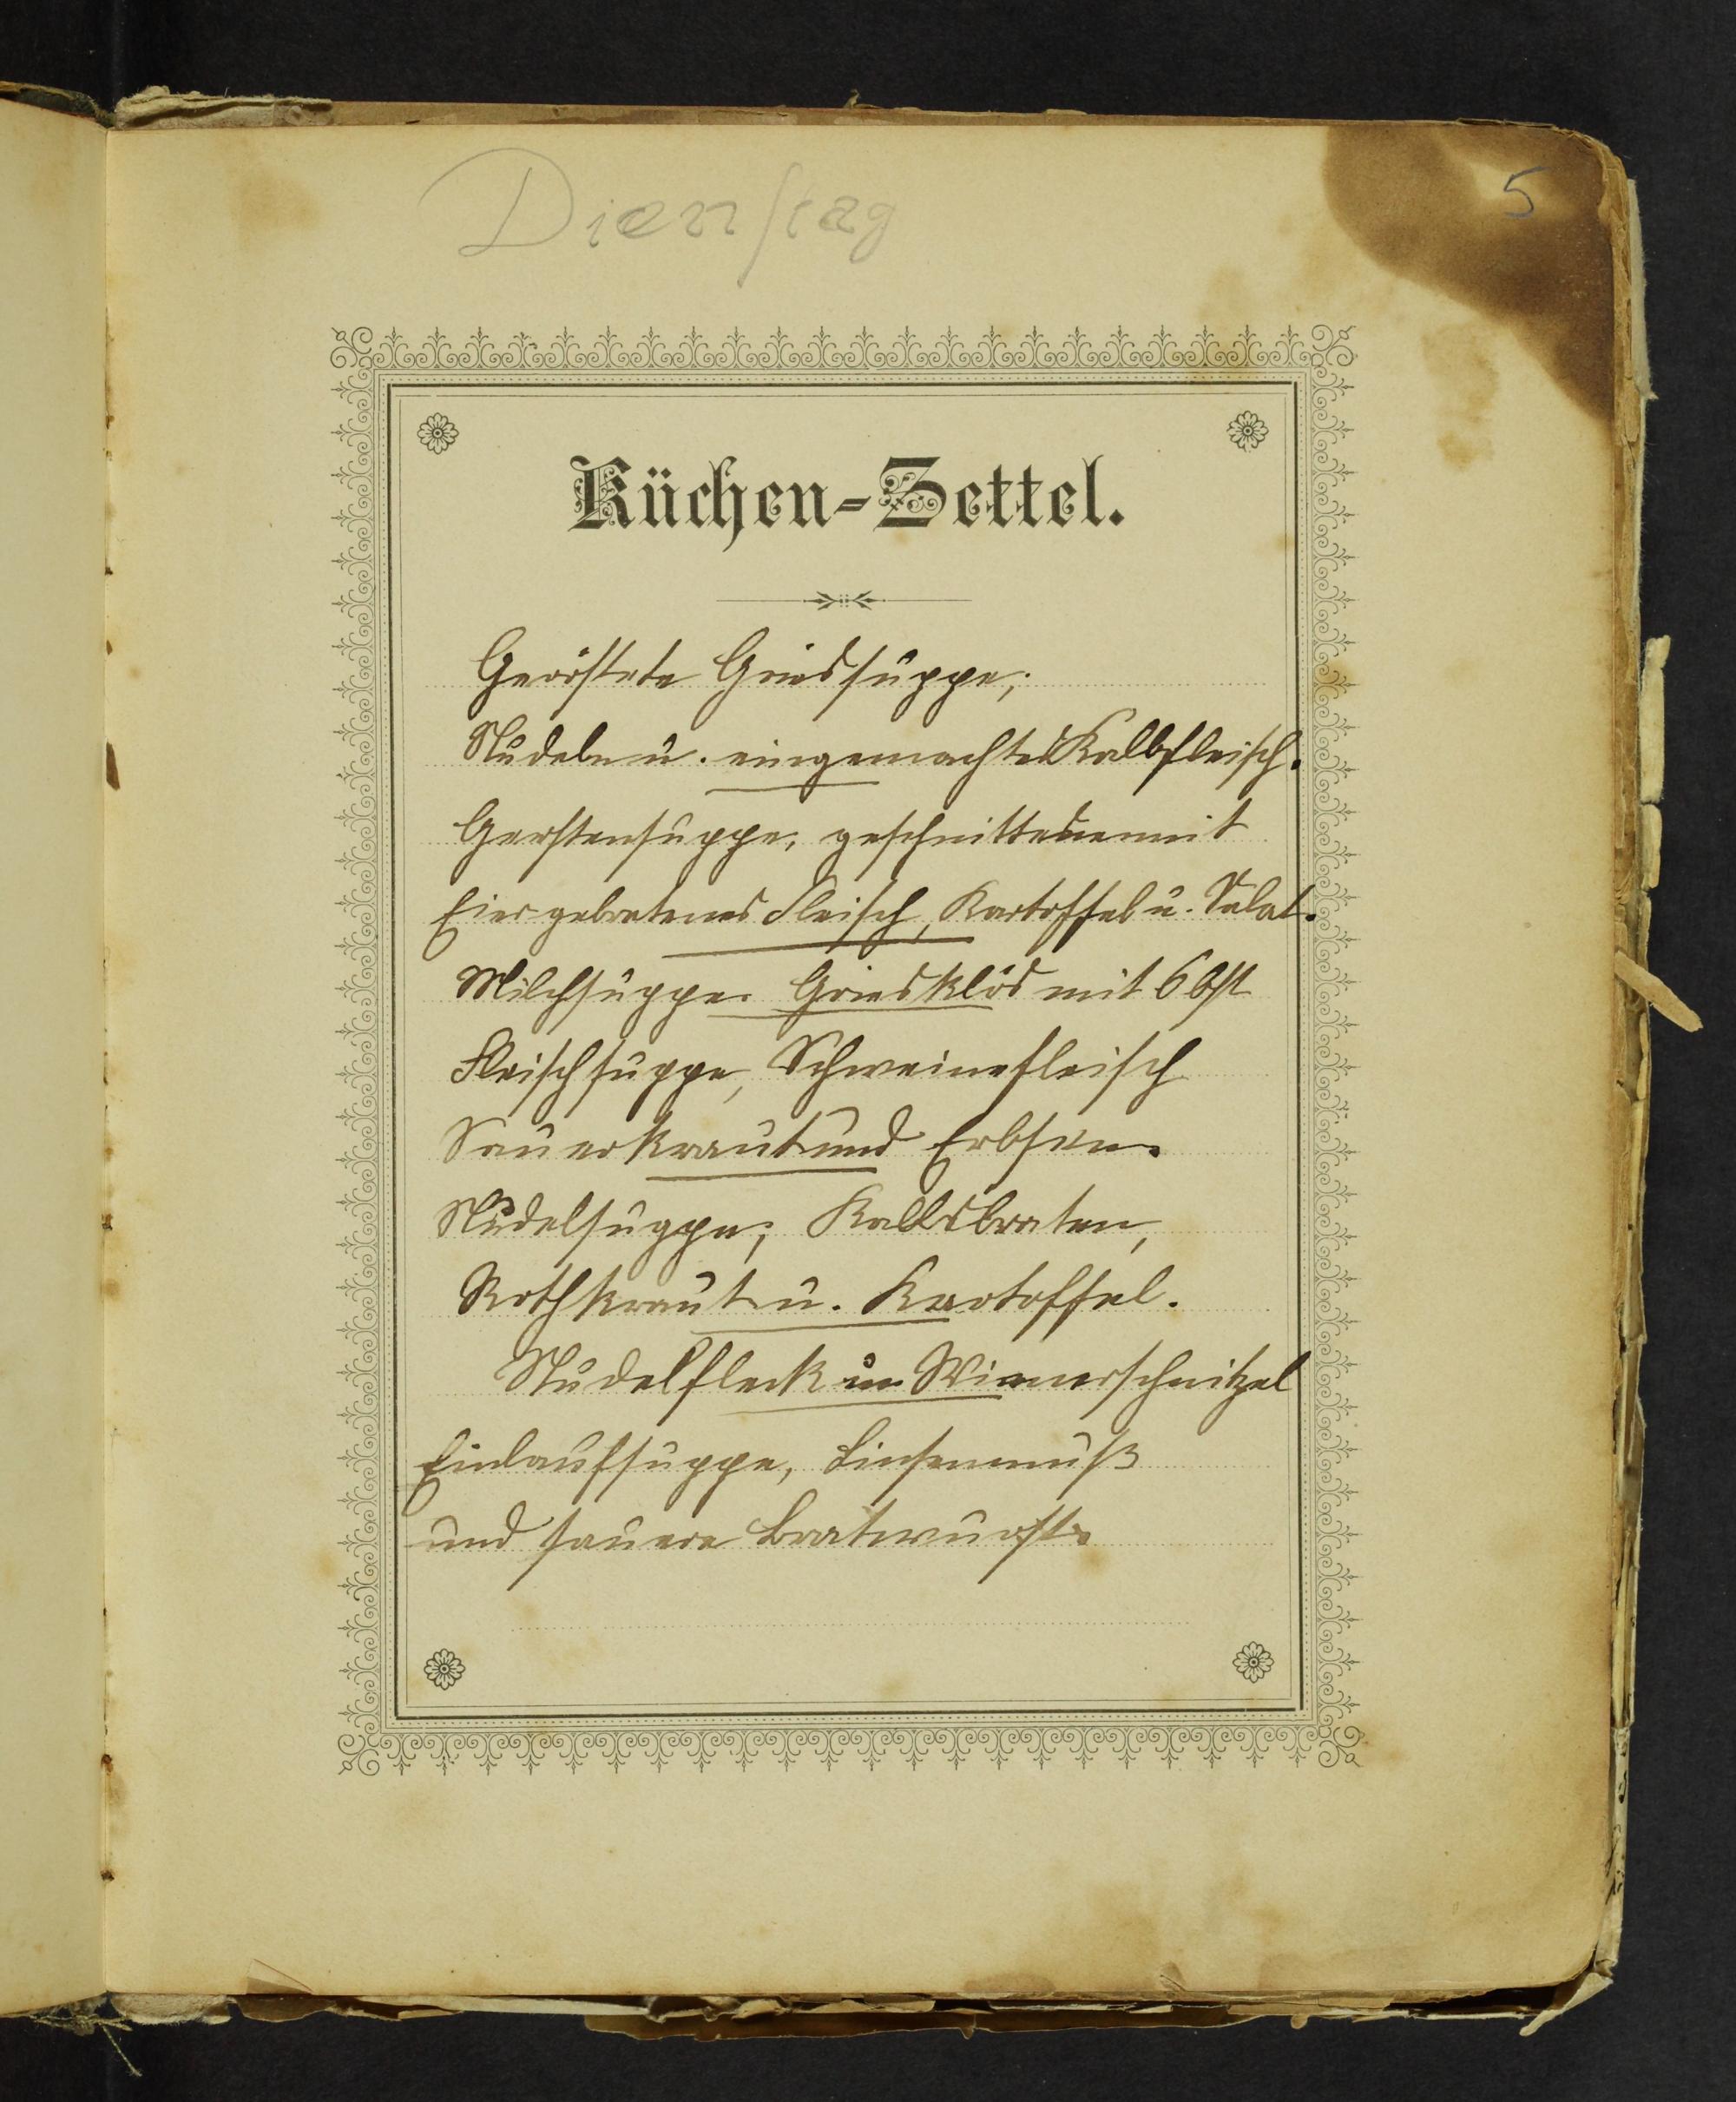 Dienstag
5
Küchen-Zettel.
Geröstete Griessuppe;
Nudeln u. eingemachtes Kalbfleisch.
Gerstensuppe, geschnittene mit
Eier gebratenes Fleisch, Kartoffel u. Salat.
Milchsuppe. Griesklös mit Obst
Fleischsuppe, Schweinefleisch
Sauerkraut und Erbsen.
Nudelsuppe; Kalbsbraten,
Rothkraut u. Kartoffel.
Nudelfleck u. Wienerschnitzel
Einlaufsuppe, Linsenmuß
und sauere Bratwurst.